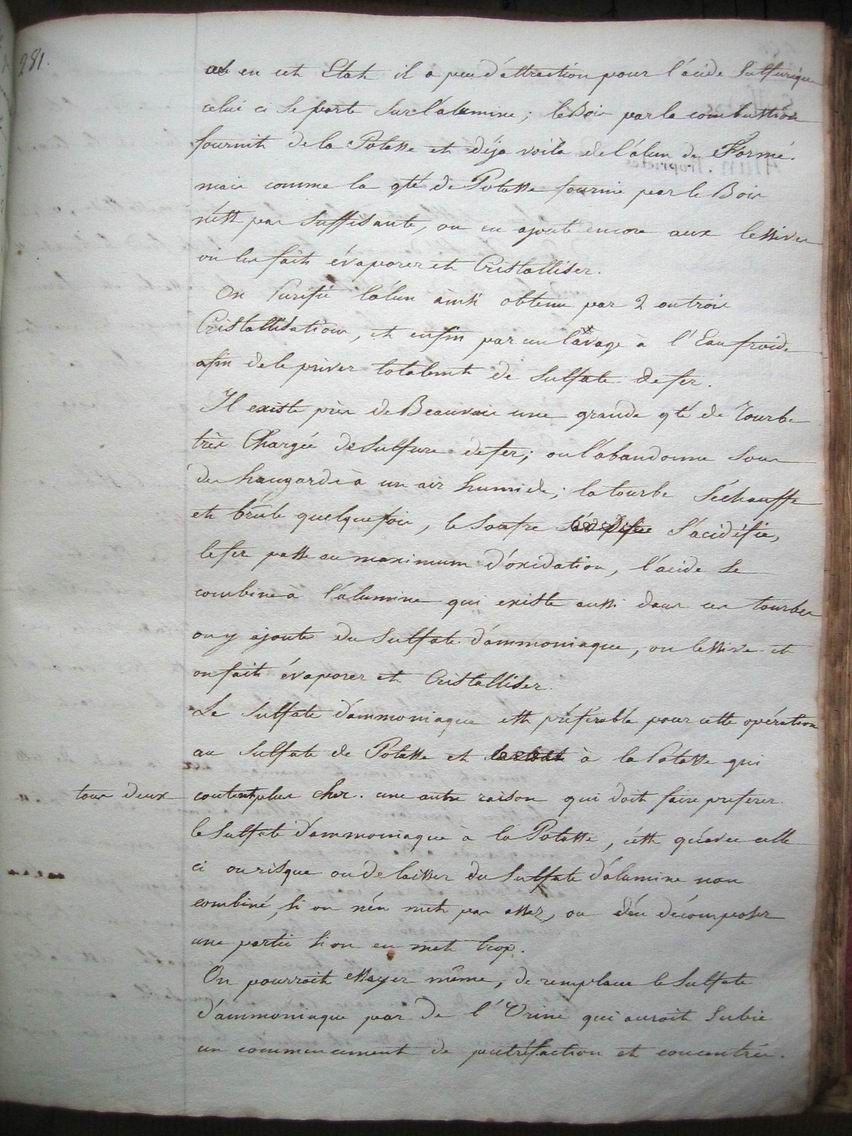 281.
en cet Etat il a peu d'attraction pour l'acide Sulfurique
celui ci Se porte Sur l'alumine; le Bois par la combustion
fournit de la Potasse et déja voila de l'alun de Formé.
mais comme la qté de Potasse fournie par le Bois
n'est pas Suffisante, on en ajoute encore aux lessives
on les fait évaporer et Cristalliser.
On Purifie l'alun ainsi obtenu par 2 ou trois
Cristallisations, et enfin par un lavage a l'Eau froide
afin de le priver totalemt de Sulfate de fer.
Il existe près de Beauvais une grande qté de Tourbe
très Chargée de Sulfure de fer; on l'abandonne Sous
des hangards à un air humide; la tourbe S'échauffe
et brûle quelquefois, le Soufre S'acidifie,
le fer passe au maximum d'oxidation, l'acide Se
combine à l'alumine qui existe aussi dans ces tourbes
on y ajoute du Sulfate d'ammoniaque, on lessive et
on fait évaporer et Cristalliser.
Le Sulfate d'ammoniaque est préférable pour cette opération
au Sulfate de Potasse et à la Potasse qui
tous deux
content plus cher. une autre raison qui doit faire preferer
le Sulfate d'ammoniaque à la Potasse, c'est qu'avec celle
ci on risque ou de laisser du Sulfate d'alumine non
combiné, Si on n'en met pas assez, ou d'en décomposer
une partie Si on en met trop.
On pourroit essayer même, de remplacer le Sulfate
d'ammoniaque par de l'Urine qui auroit Subie
un commencement de putréfaction et concentrée.